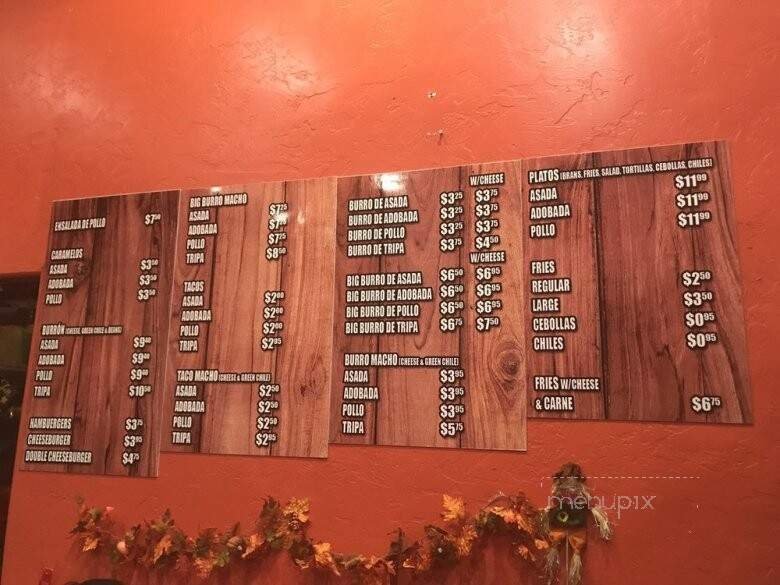 ENSALADA DE POLLO $7⁵⁰
CARAMELOS
ASADA $3⁵⁰
ADOBADA $3⁵⁰
POLLO $3⁵⁰
BURRÓN (CHEESE, GREEN CHILE & BEANS)
ASADA
ADOBADA
POLLO
TRIPA $10⁵⁰
HAMBUERGERS $3⁷⁵
CHEESEBURGER $3⁹⁵
DOUBLE CHEESEBURGER $4⁷⁵
BIG BURRO MACHO
ASADA $7²⁵
ADOBADA $7²⁵
POLLO $7²⁵
TRIPA $8⁵⁰
TACOS
ASADA $2⁰⁰
ADOBADA $2⁰⁰
POLLO $2⁰⁰
TRIPA $2⁹⁵
TACO MACHO (CHEESE & GREEN CHILE)
ASADA $2⁵⁰
ADOBADA $2⁵⁰
POLLO $2⁵⁰
TRIPA $2⁹⁵
W/CHEESE
BURRO DE ASADA $3²⁵ $3⁷⁵
BURRO DE ADOBADA $3²⁵ $3⁷⁵
BURRO DE POLLO $3²⁵ $3⁷⁵
BURRO DE TRIPA $3⁷⁵ $4⁵⁰
W/CHEESE
BIG BURRO DE ASADA $6⁵⁰ $6⁹⁵
BIG BURRO DE ADOBADA $6⁵⁰ $6⁹⁵
BIG BURRO DE POLLO $6⁵⁰ $6⁹⁵
BIG BURRO DE TRIPA $6⁷⁵ $7⁵⁰
BURRO MACHO (CHEESE & GREEN CHILE)
ASADA $3⁹⁵
ADOBADA $3⁹⁵
POLLO $3⁹⁵
TRIPA $5⁷⁵
PLATOS (BEANS, FRIES, SALAD, TORTILLAS, CEBOLLAS, CHILES)
ASADA $11⁹⁹
ADOBADA $11⁹⁹
POLLO $11⁹⁹
FRIES
REGULAR $2⁵⁰
LARGE $3⁵⁰
CEBOLLAS $0⁹⁵
CHILES $0⁹⁵
FRIES W/CHEESE
& CARNE $6⁷⁵
menupix